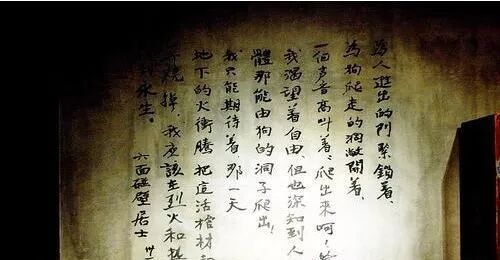 為人進出的門緊鎖着，
為狗爬走的洞敞開着，
一個声音高叫着：爬出來呵！
我渴望着自由，但也深知到人
體那能由狗的洞子爬出！
我只能期待着那一天
地下的火衝騰，把這活棺材和
燒掉，我應該在烈火和
永生。
六面碰壁居士 卅